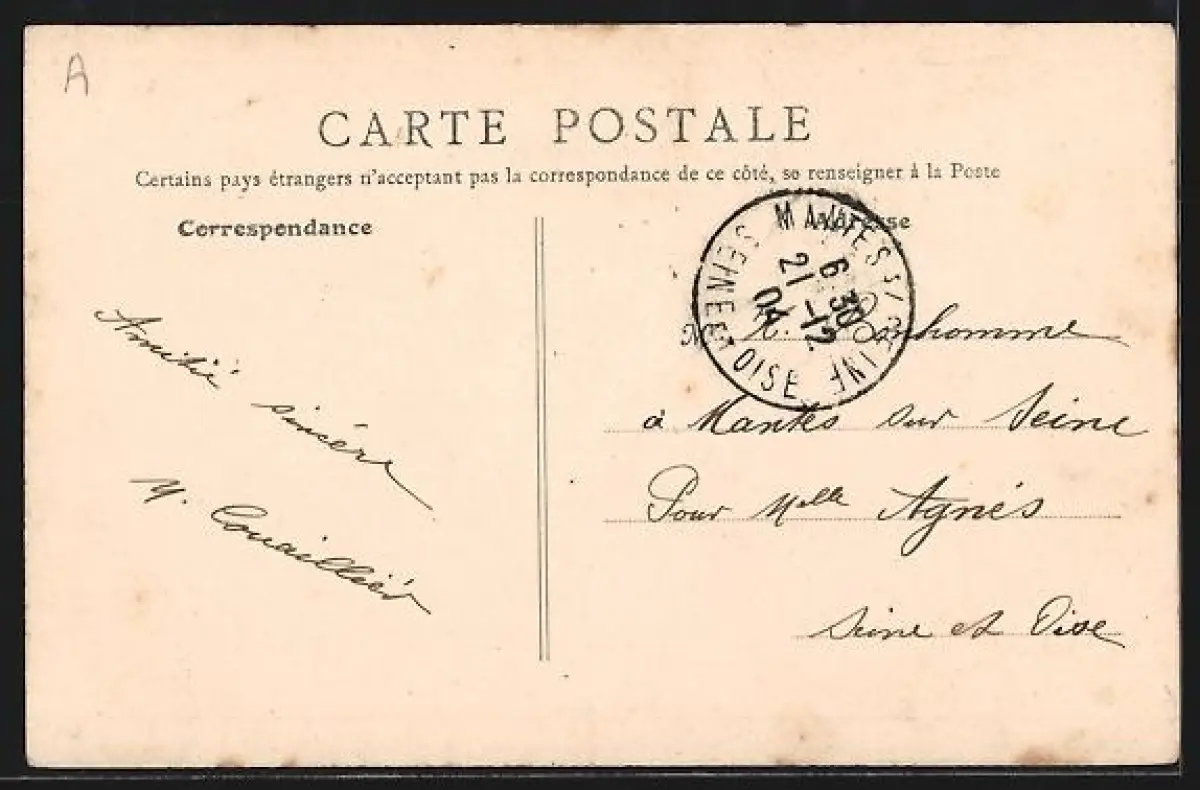 A
CARTE POSTALE
Certains pays étrangers n'acceptant pas la correspondance de ce côté, se renseigner à la Poste
Correspondance
Amitié
sincère
M. Couaillier
Adresse
MANTES S/ SEINE
6 30
21 -12
04
SEINE-ET-OISE
M. Bonhomme
à Mantes sur Seine
Pour Melle Agnès
Seine et Oise